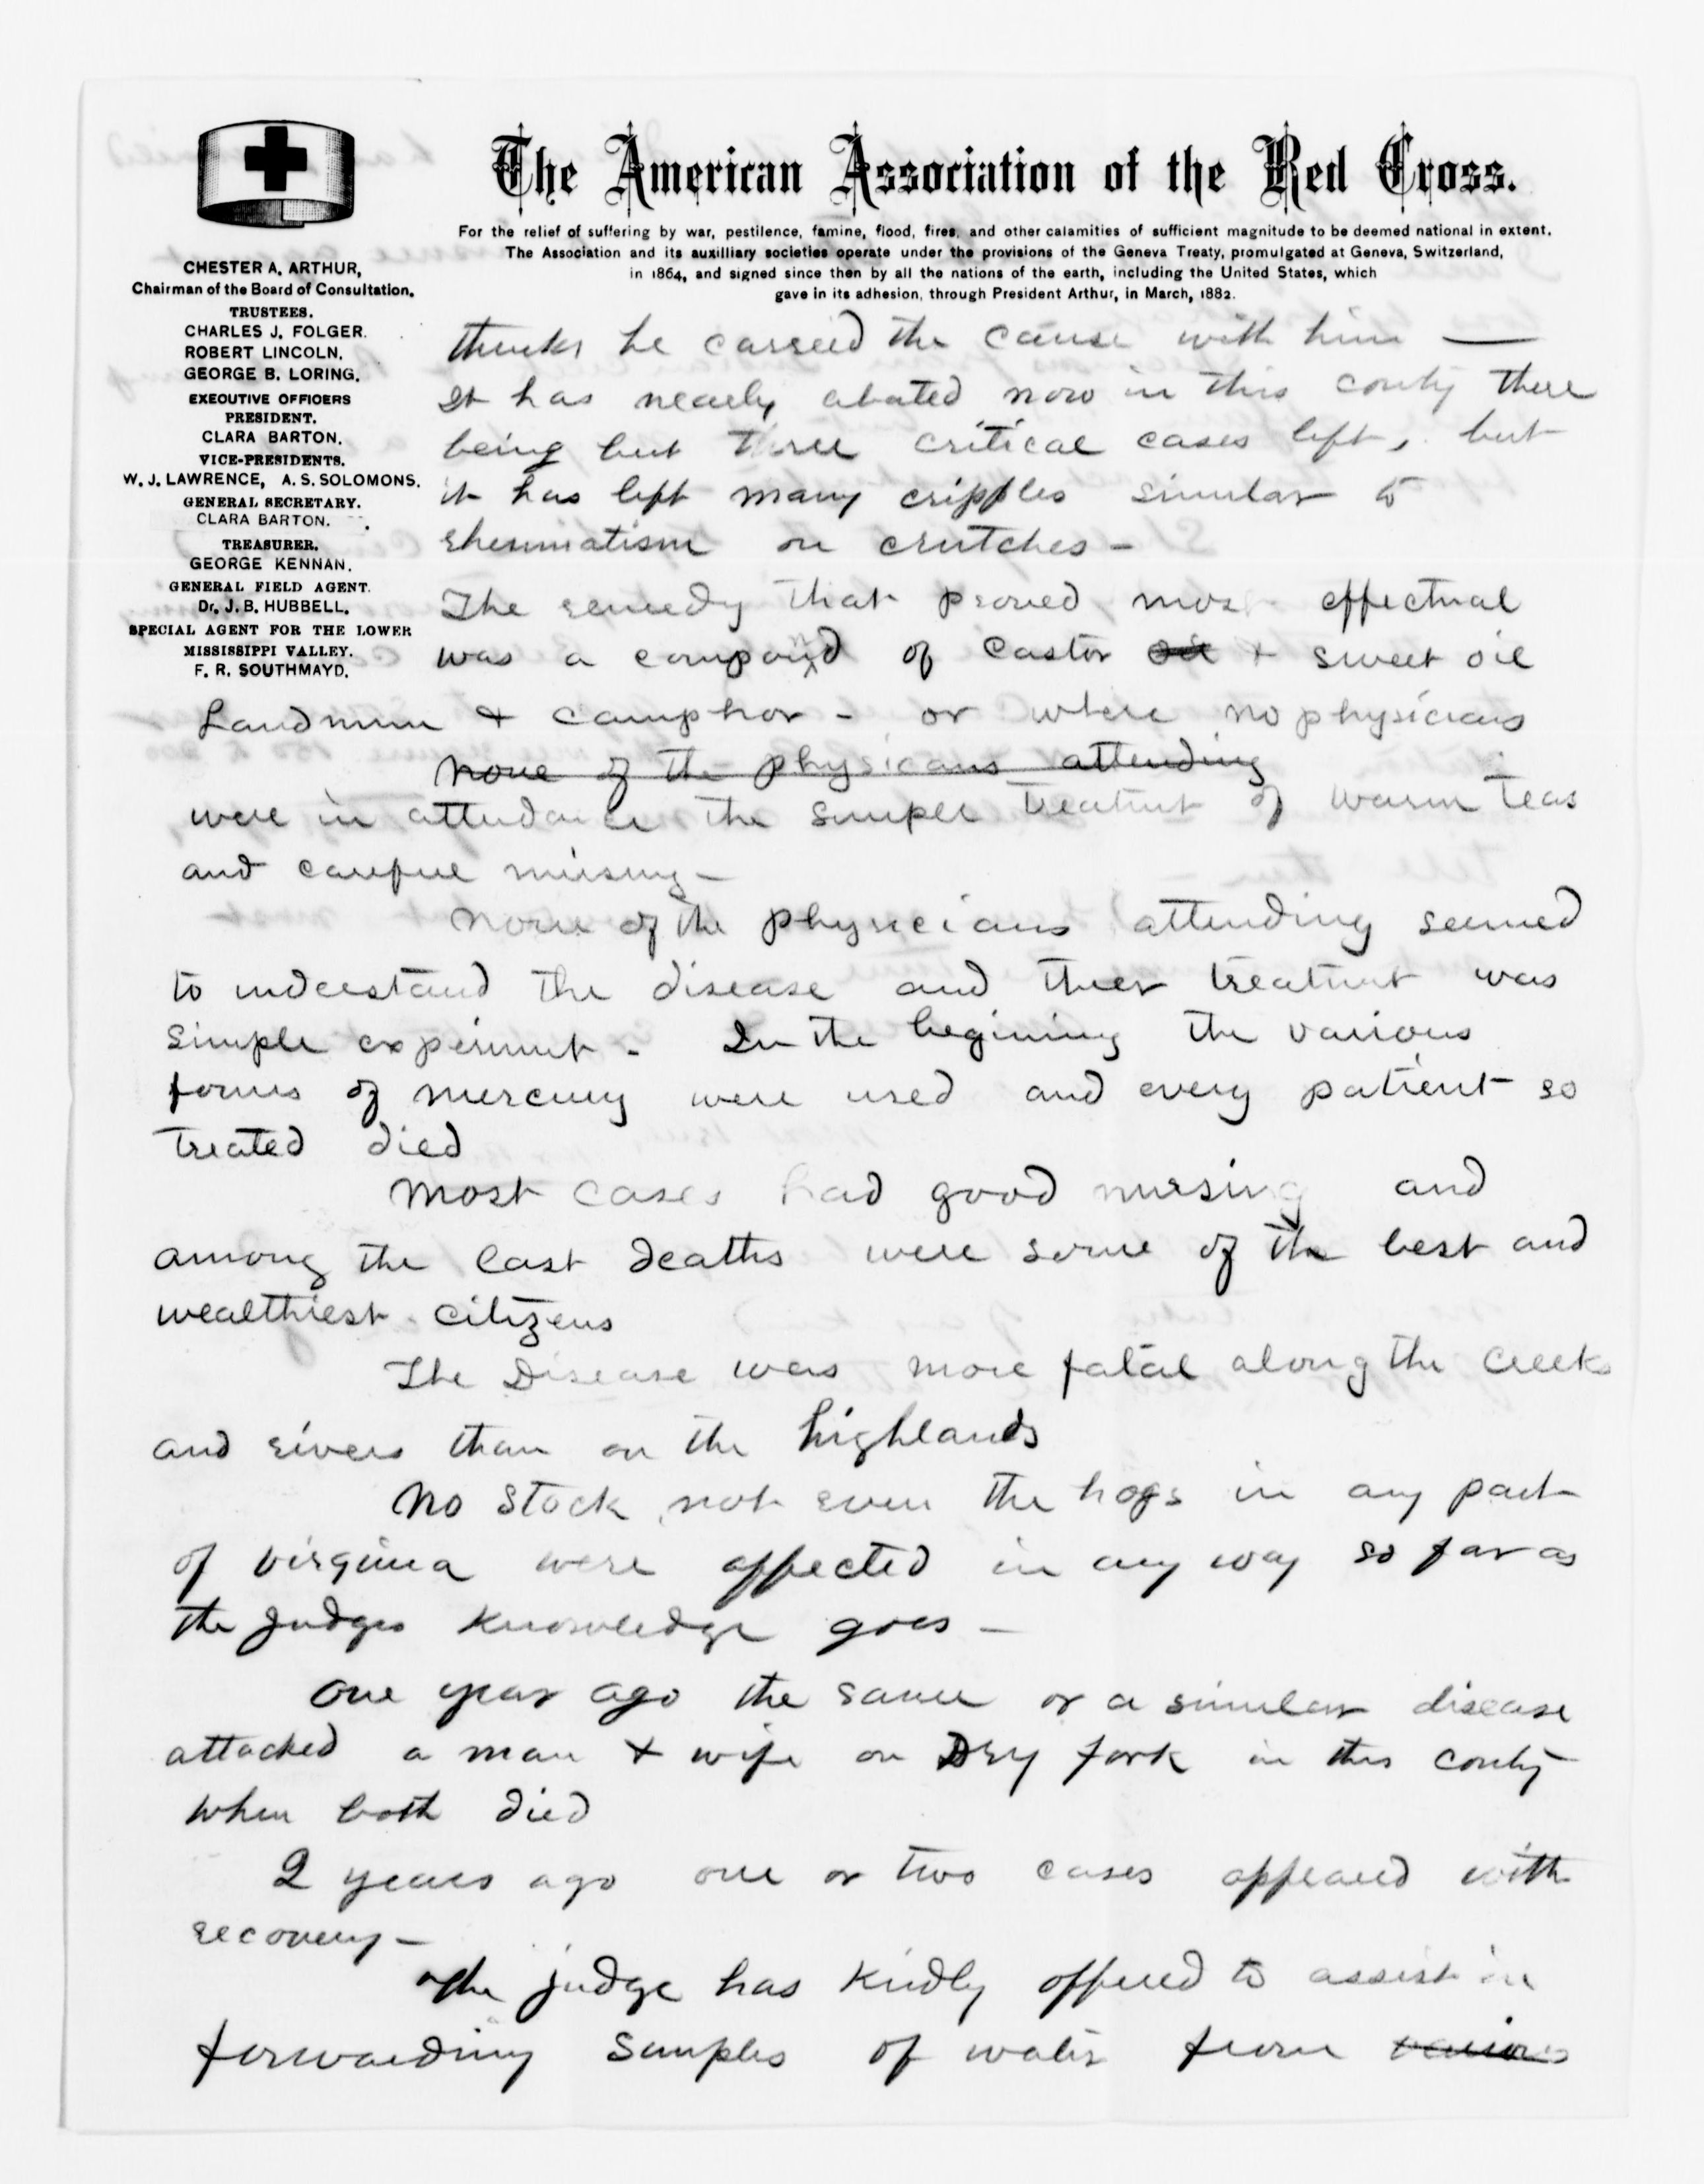 The American Association of the Red Cross.
For the relief of suffering by war, pestilence, famine, flood, fires, and other calamities of sufficient magnitude to be deemed national in extent.
The Association and its auxilliary societies operate under the provisions of the Geneva Treaty, promulgated at Geneva, Switzerland,
in 1864, and signed since then by all the nations of the earth, including the United States, which
gave in its adhesion, through President Arthur, in March, 1882.
CHESTER A. ARTHUR,
Chairman of the Board of Consultation.
TRUSTEES.
CHARLES J. FOLGER.
ROBERT LINCOLN.
GEORGE B. LORING.
EXECUTIVE OFFICERS
PRESIDENT.
CLARA BARTON.
VICE-PRESIDENTS.
W. J. LAWRENCE, A. S. SOLOMONS.
GENERAL SECRETARY.
CLARA BARTON.
TREASURER.
GEORGE KENNAN.
GENERAL FIELD AGENT.
Dr. J. B. HUBBELL.
SPECIAL AGENT FOR THE LOWER
MISSISSIPPI VALLEY.
F. R. SOUTHMAYD.
thinks he carried the cause with him —
It has nearly abated now in this conty there
being but three critical cases left, but
it has left many cripples similar to
rheumatism on crutches –
The remedy that proved most effectual
was a compound of castor oil + sweet oil
Laudnum + camphor – or where no physicians
none of the physicans attending
were in attendance the simple treatmt of warm teas
and careful nursing –
none of the physicians attending seemed
to understand the disease and their treatmt was
simple experimnt – In the begining the various
forms of mercury were used and every patient so
treated died
most cases had good nursing and
among the last deaths were some of the best and
wealthiest citizens
The Disease was more fatal along the creeks
and rivers than on the highlands
No stock not even the hogs in any part
of virginia were affected in any way so far as
the judges knowledge goes –
One year ago the same or a similar disease
attacked a man + wife on Dry fork in this conty
when both died
2 years ago one or two cases appeared with
recovery –
The judge has kindly offered to assist in
forwarding samples of water from various